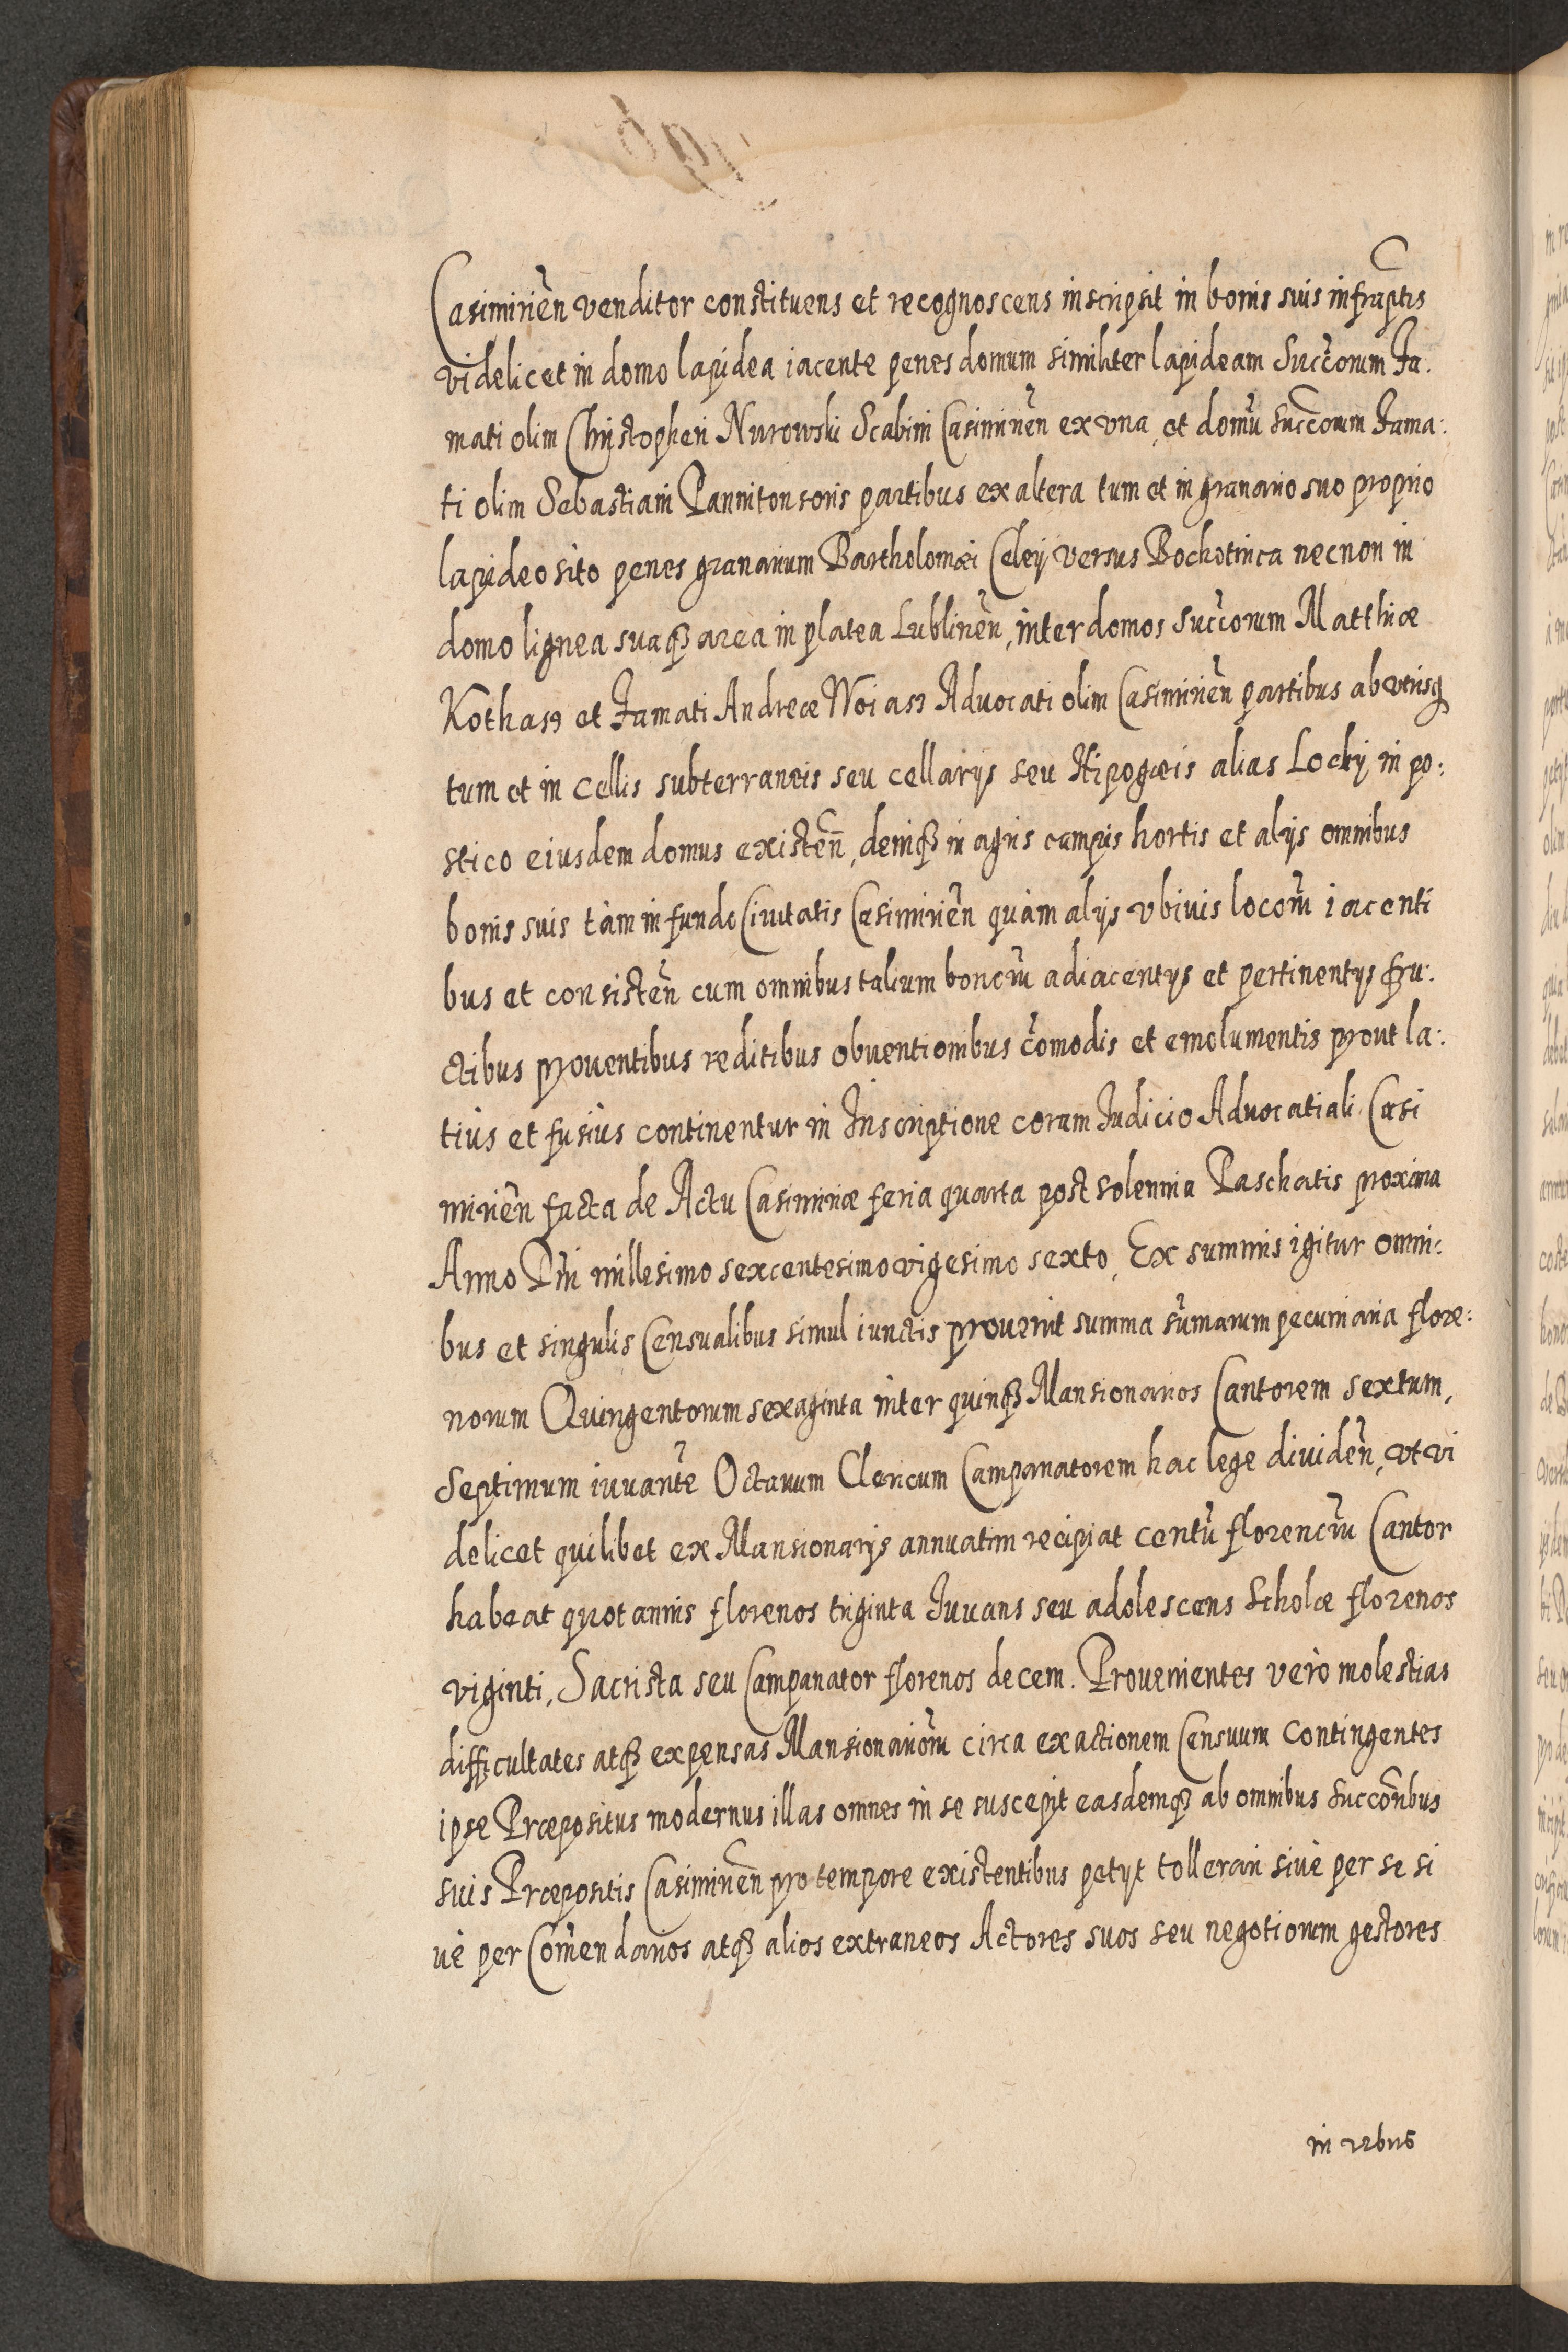 Casimirien̄ venditor constituens et recognoscens inscripsit in bonis suis infrap̄tis
videlicet in domo lapidea iacente penes domum similiter lapideam Succ̄orum Fa:
mati olim Christopheri Nurowski Scabini Casimirien̄ ex vna, et domū succ̄orum Fama:
ti olim Sebastiani Pannitonsoris partibus ex altera tum et in granario suo proprio
lapideo sito penes granarium Bartholomæi Celeij versus Bochotinca necnon in
domo lignea suaqꝫ area in platea Lublinen̄, inter domos succ̄orum Matthiæ
Kothasz et Famati Andreæ Woiasz Advocati olim Casimirien̄ partibus ab vtrisqꝫ
tum et in cellis subterraneis seu cellarijs seu Hipogæis alias Lochy in po:
stico eiusdem domus existen̄, deniqꝫ in agris campis hortis et alijs omnibus
bonis suis tàm in fundo Ciuitatis Casimirien̄ quàm alijs vbiuis locorū iacenti
bus et consisten̄ cum omnibus talium bonorū adiacentijs et pertinentijs fru:
ctibus prouentibus reditibus obuentionibus c̄omodis et emolumentis prout la:
tiùs et fusiùs continentur in Inscriptione coram Iudicio Advocatiali Casi
mirien̄ facta de Actu Casimiriæ feria quarta post solennia Paschatis proxima
Anno Dn̄i millesimo sexcentesimo vigesimo sexto, Ex summis igitur omni:
bus et singulis Censualibus simul iunctis prouenit summa sūmarum pecuniaria flore:
norum Quingentorum sexaginta inter quinqꝫ Mansionarios Cantorem sextum,
septimum iuuantē Octauum Clericum Campanatorem hac lege dividen̄, vt vi
delicet quilibet ex Mansionarijs annuatim recipiat centū florenorū Cantor
habeat quotannis florenos triginta Iuvans seu adolescens Scholæ florenos
viginti, Sacrista seu Campanator florenos decem. Prouenientes verò molestias
difficultates atqꝫ expensas Mansionariorū circa exactionem Censuum contingentes
ipse Præpositus modernus illas omnes in se suscepit easdemqꝫ ab omnibus Succōribus
suis Præpositis Casimirien̄ pro tempore existentibus petijt tollerari siuè per se si
uè per Com̄endarios atqꝫ alios extraneos Actores suos seu negotiorum gestores
in rebus